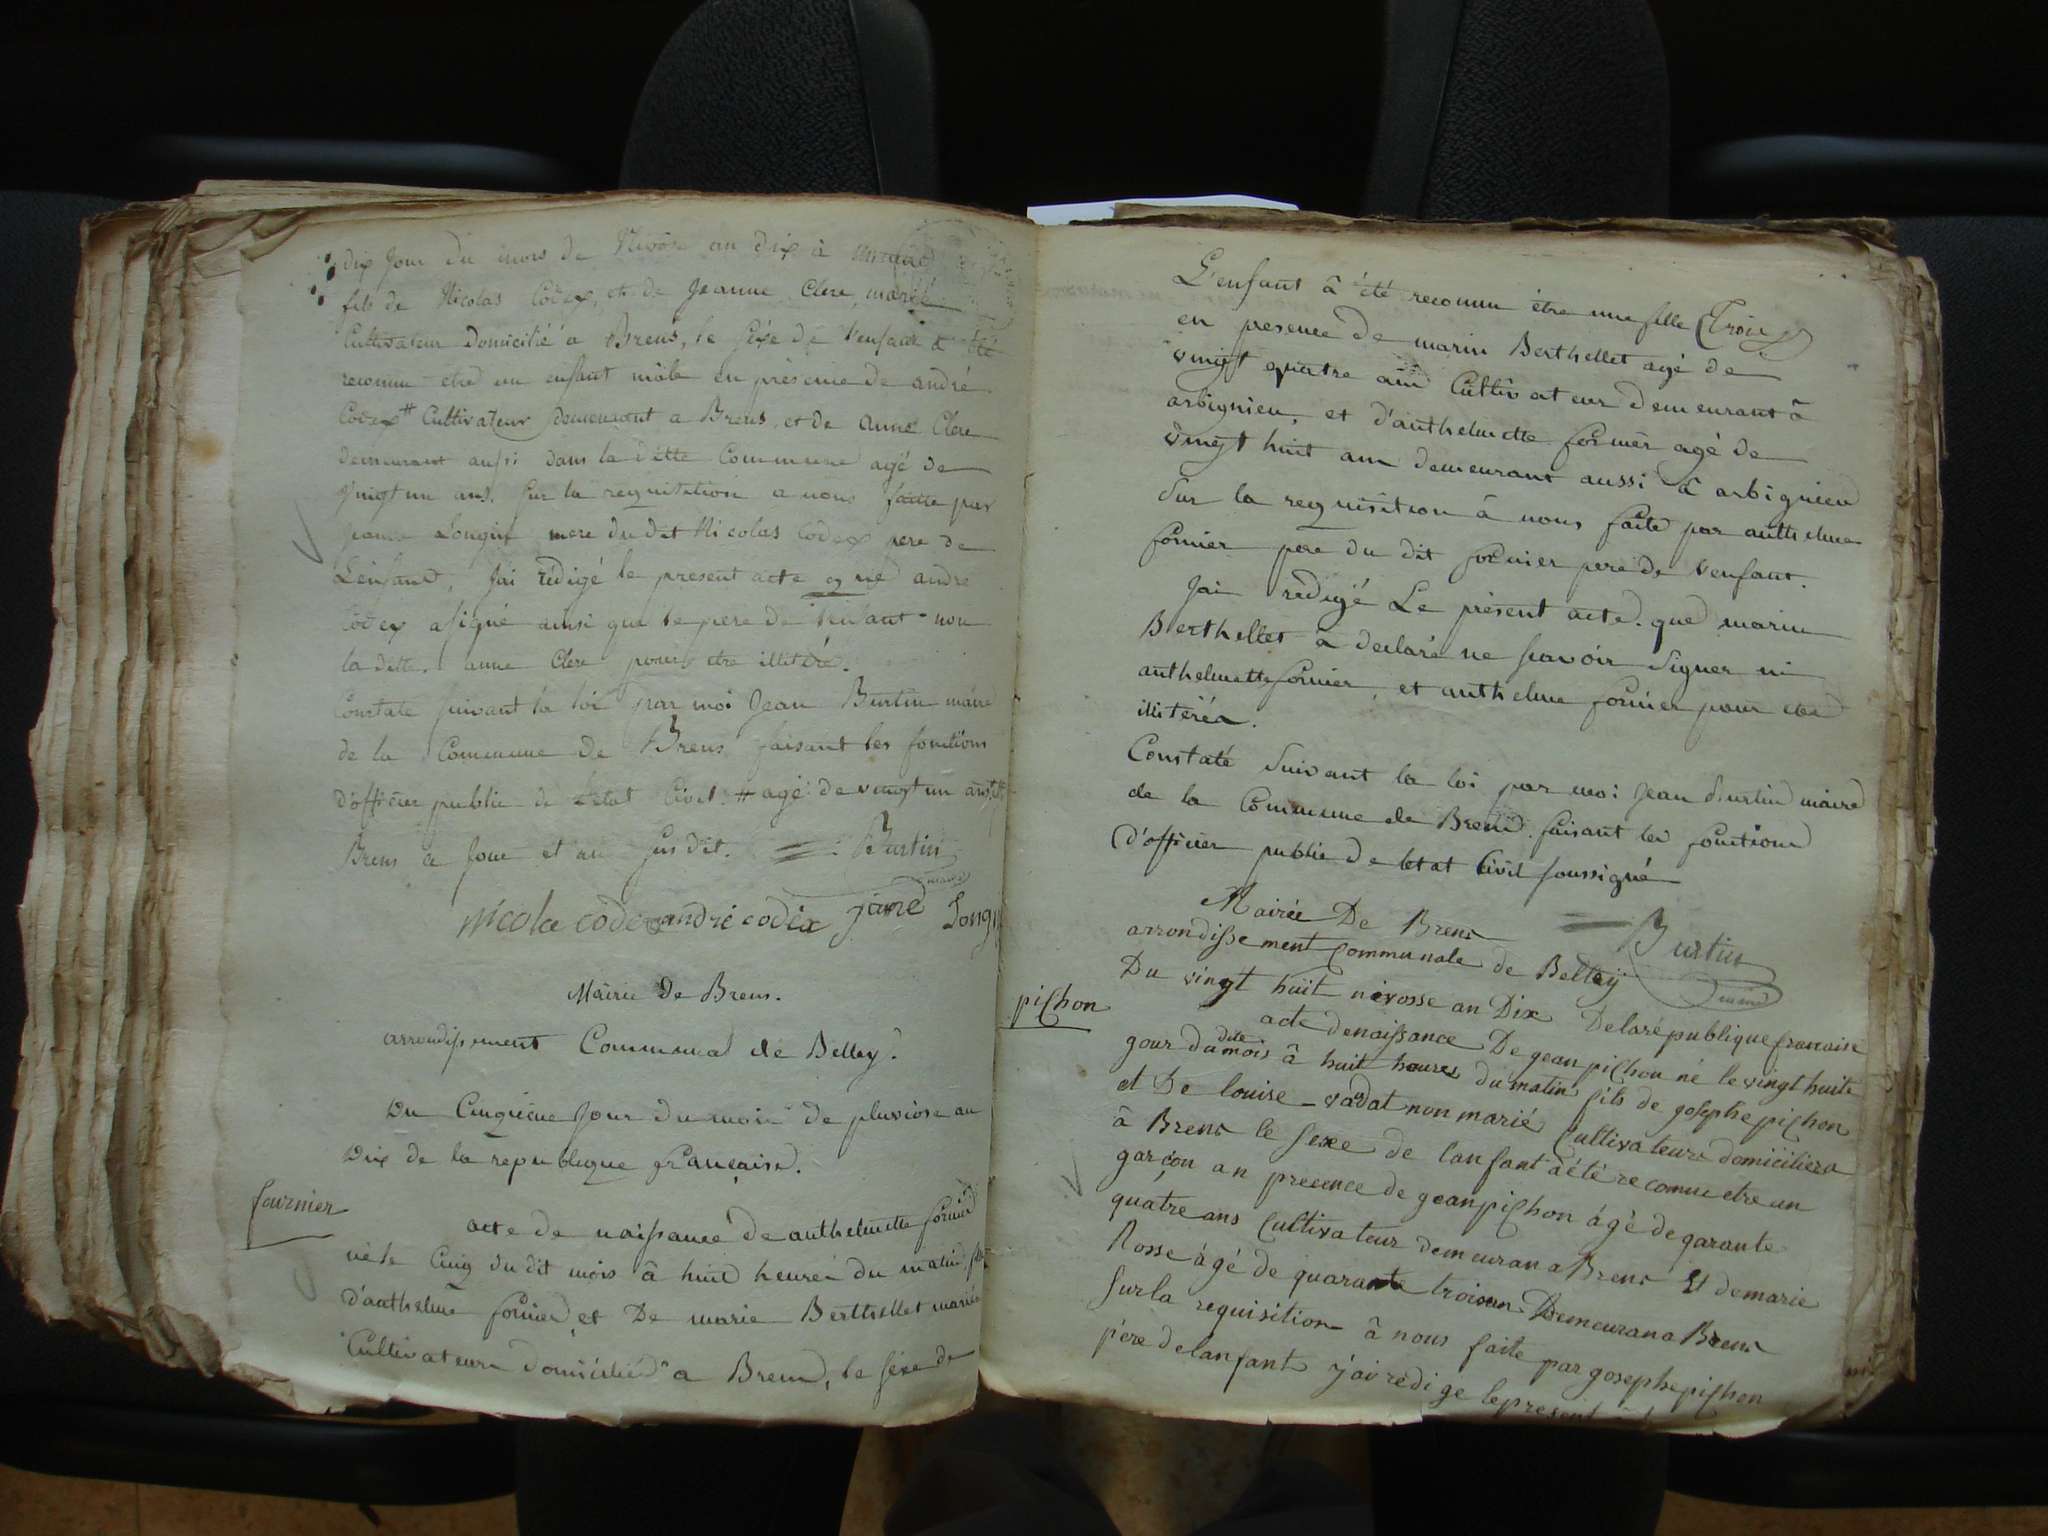 dix Jour du mois de Nivôse an dix à minuit
fils de Nicolas Codex, et de Jeanne Clere marié
Cultivateur Domicilié a Brens, le sexe de l'enfant a été
reconnu etre un enfant mâle en présence de andré
Codex # Cultivateur demeurant a Brens, et de anne Clere
demeurant aussi dans la ditte Commune agé de
vingt un ans. Sur la requisitation a nous faitte par
Longin mere du dit Nicolas Codex pere de
L'enfant, J'ai rédigé le present acte que andré
Codex a signé ainsi que le pere de l'enfant non
la ditte anne Clere pour etre illitéré.
Constaté suivant la loi par moi Jean Burtin maire
de la Commune de Brens faisant les fonctions
d'officier public de l'etat Civil. # agé de vingt un ans
Brens a Jour et an sus dit. Burtin
maire
Nicola codex andré codex jane Longi
Mairie de Brens.
arrondissement Communal de Belley.
Du Cinquieme Jour du mois de pluviose an
Dix de la republique française.
fournier
acte de naissance de anthelmette fornier
née le Cinq du dit mois à huit heures du matin
d'anthelme fornier et De marie Berthellet mariés
Cultivateurs domiciliés a Brens, le séxe de
L'enfant â été reconnu être une fille Trois
en presence de marin Berthellet agé de
vingt quatre ans Cultivateur demeurant â
arbignieu, et d'anthelmette fornier agé de
vingt huit ans demeurant aussi â arbignieu
Sur la requisition â nous faite par anthelme
fornier pere du dit fornier pere de l'enfant.
J'ai redigé Le présent acte. que marin
Berthellet a declaré ne scavoir signer ni
anthelmette fornier, et anthelme fornier pour etre
illitérés.
Constaté Suivant la loi par moi Jean Burtin maire
de la Commune de Brens faisant les fonctions
d'officier public de letat Civil soussigné
Burtin
maire
Mairie De Brens
arrondissement Communale de Belley
Du vingt huit nivosse an Dix De la république francaise
pichon
acte de naissance De gean pichon né le vingt huite
gour du dite mois â huit houres du matin fils de gosephe pichon
et De louise vadat non marié Cultivateurs domiciliera
â Brens le sexe de lanfant a été reconnu etre un
garçon an preence de gean pichon âgé de qarante
quatre ans Cultivateur demeuran a Brens Et de marie
Rosse âgé de quarante trois an Demeuran a Brens
sur la requisition â nous faite par gosephe pichon
père de lanfant j'ai redige le present